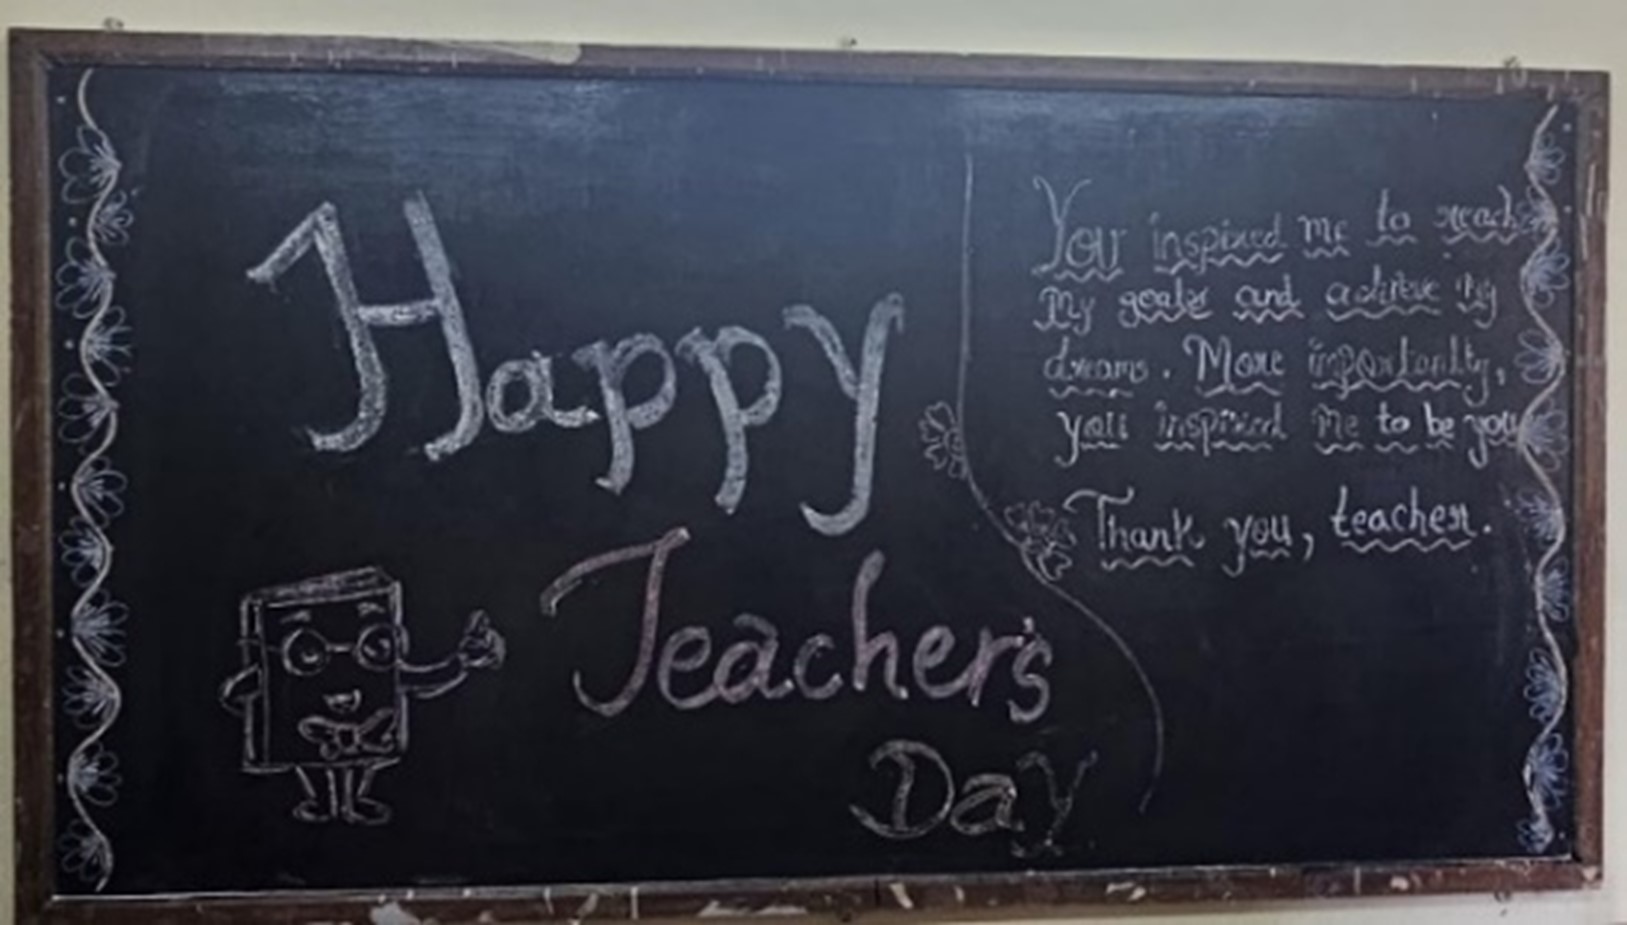 Happy
Teacher's
Day
You inspired me to reach
my goals and achieve my
dreams. More importantly,
you inspired me to be you
Thank you, teacher.